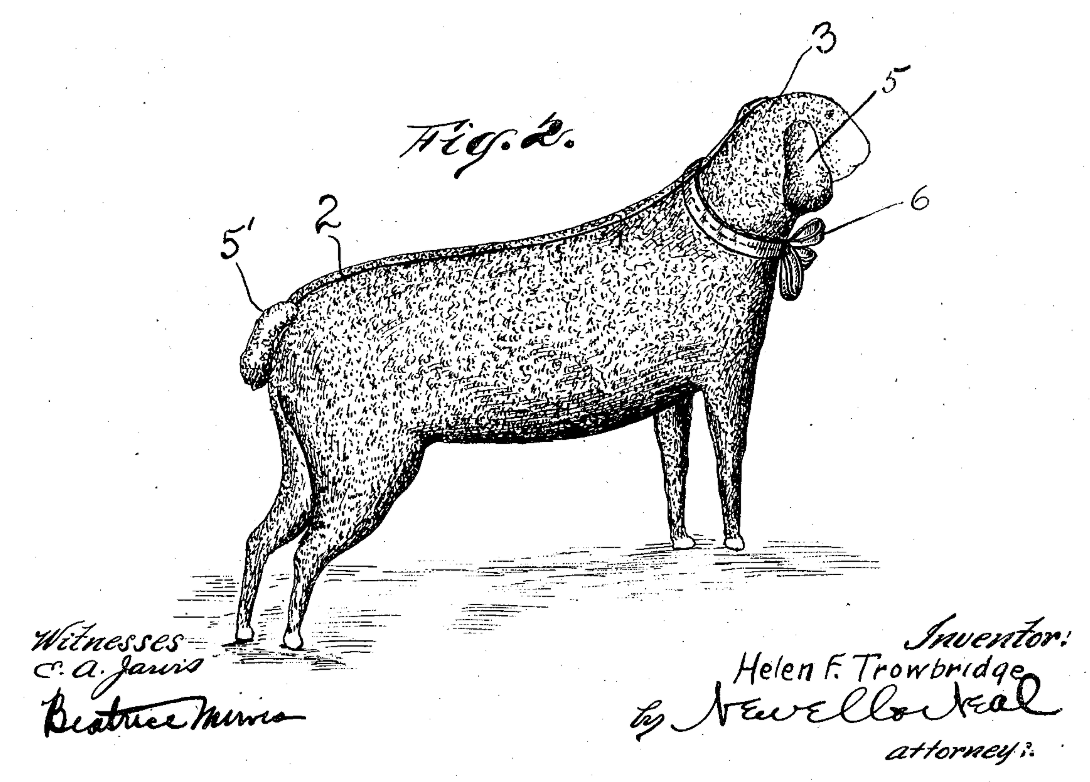 3
5
Fig. 2.
6
2
5'
Witnesses
E. A. Jarvis
Beatrice Mirvis
Inventor:
Helen F. Trowbridge
by Newell & Neal
attorneys.